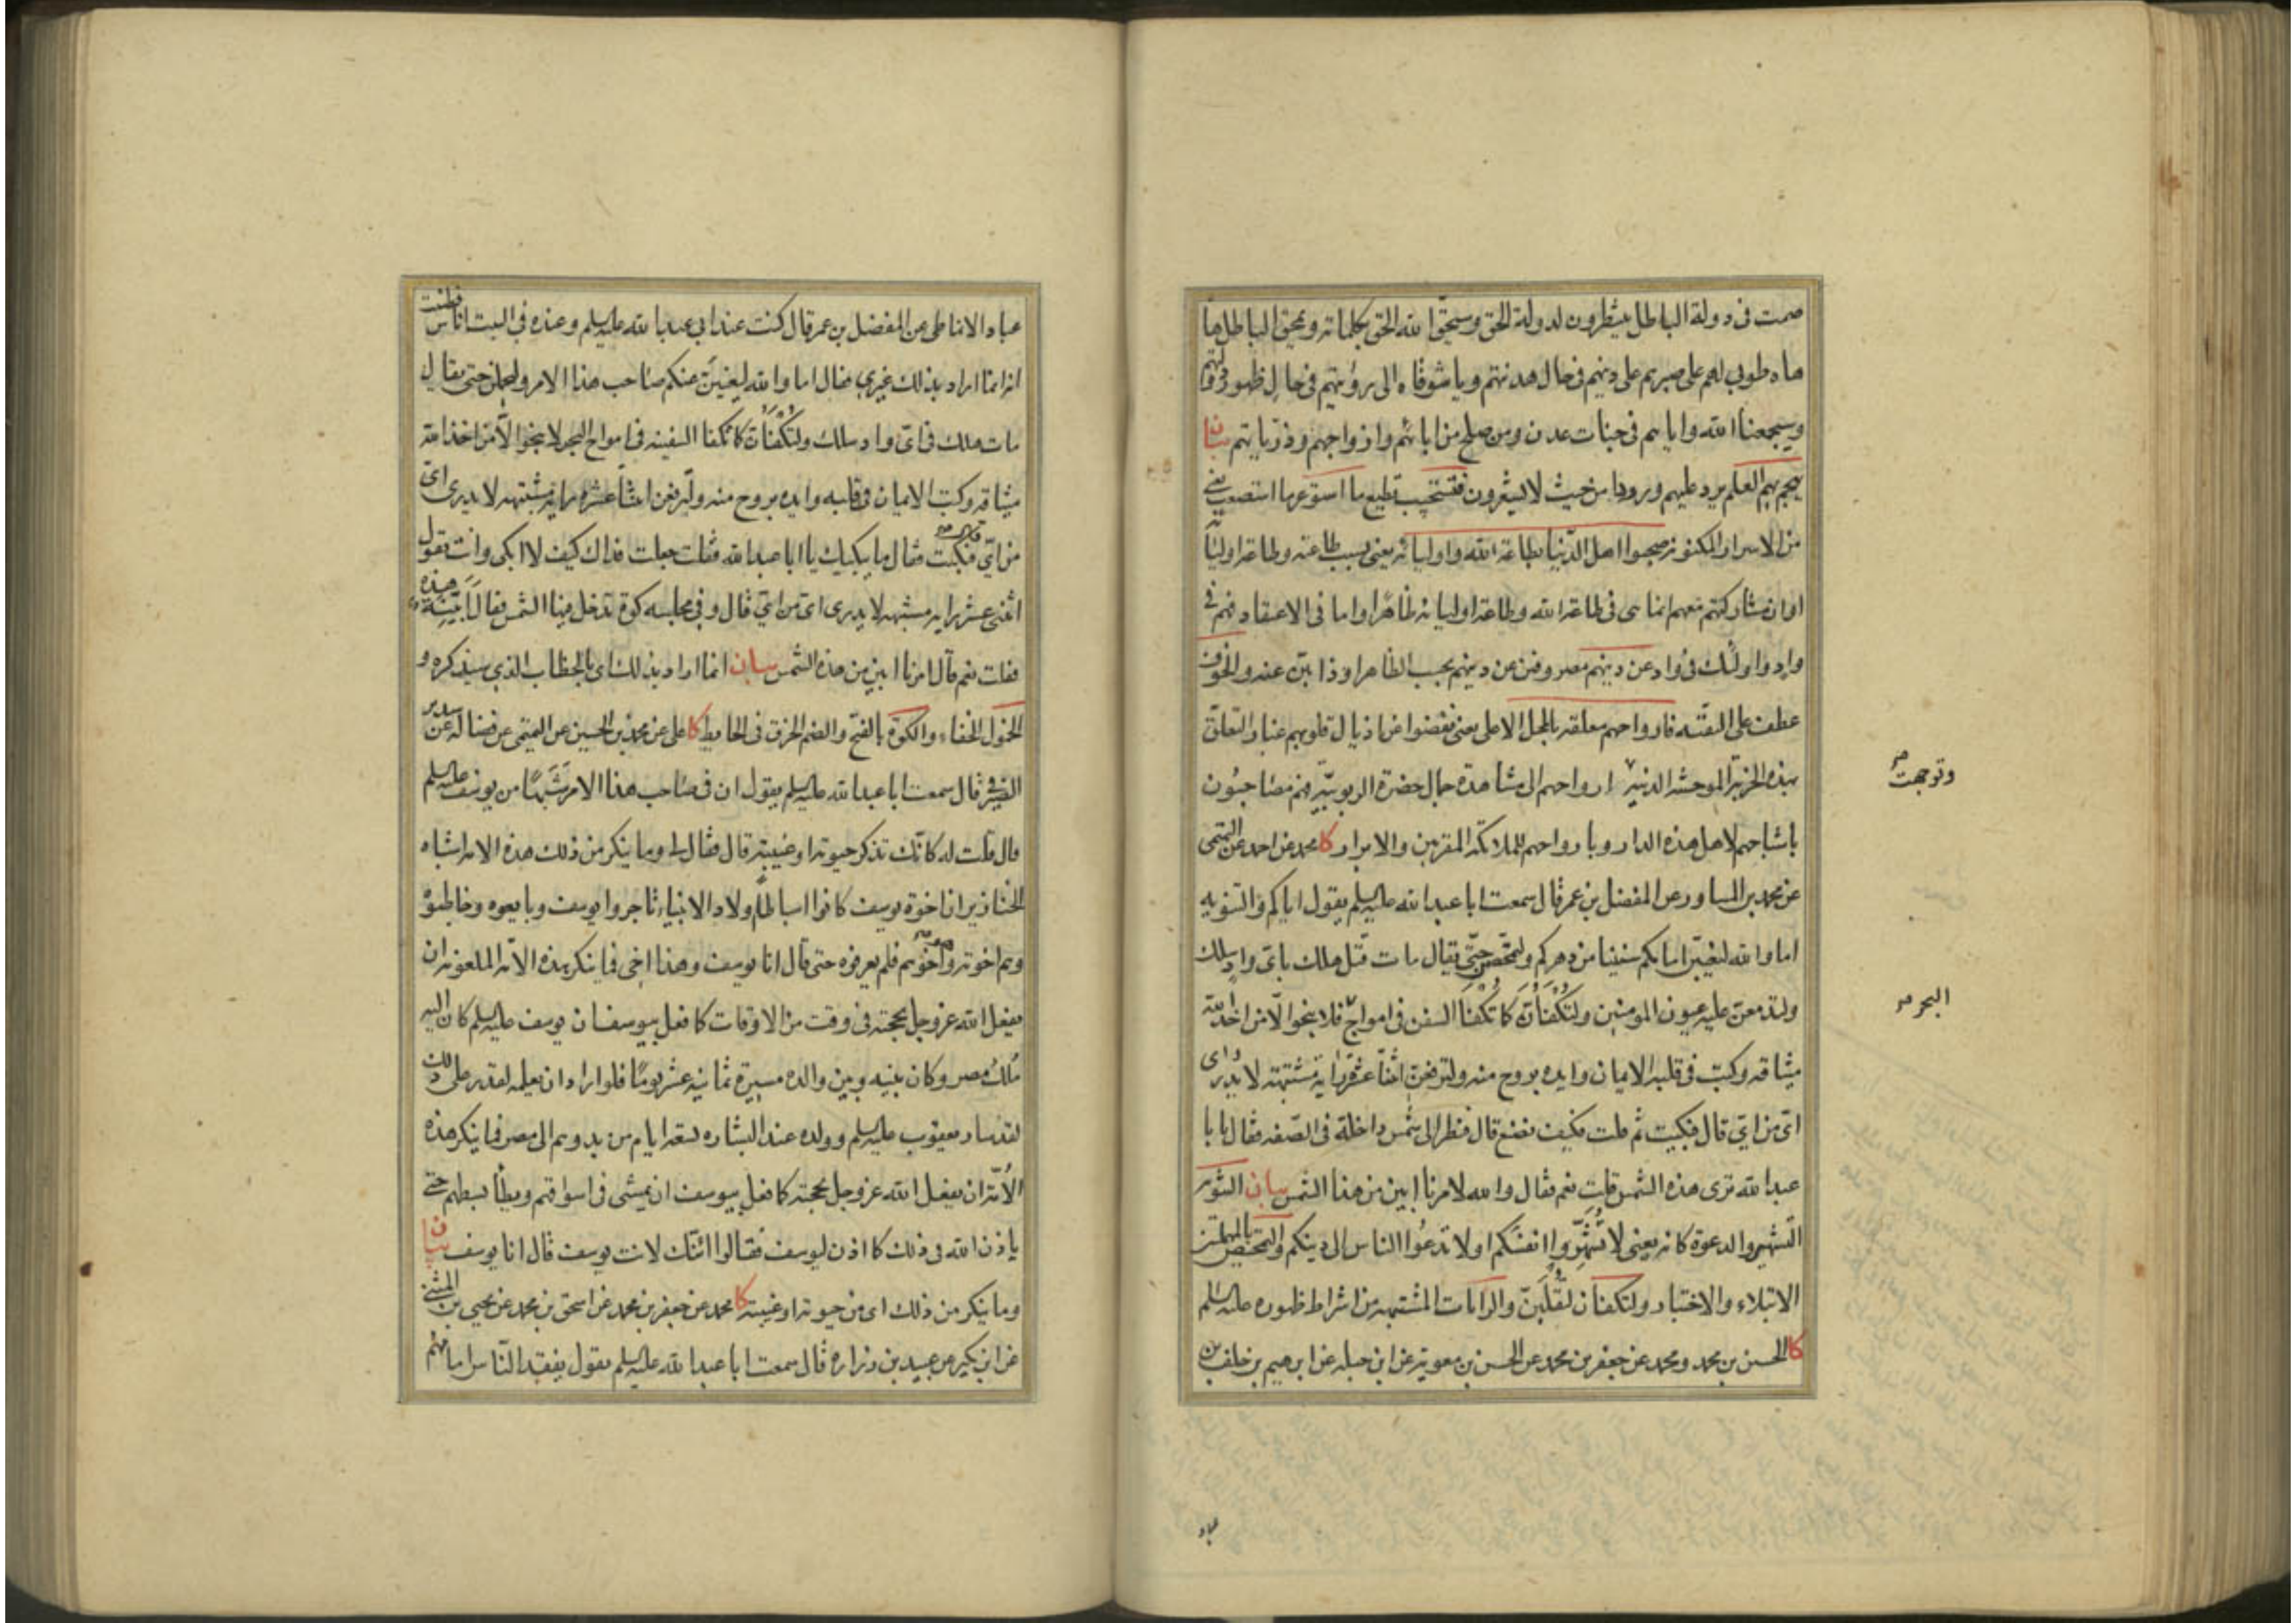 صمت فى دولة الباطل ينتظرون لدولة الحق وسيحق الله الحق بكلماته ويمحق الباطل ها
هاه طوبى لهم على صبرهم على دينهم فى حال هدنتهم ويا شوقاه الى رؤيتهم فى حال ظهور دولتهم
وسيجمعنا الله واياهم فى جنات عدن ومن صلح من ابائهم وازواجهم وذرياتهم بيان
يهجم بهم العلم يرد عليهم ورودا من حيث لا يشعرون فتستجيب تطيع ما استوعر ما استصعب يعنى
من الاسرار المكنونة صحبوا اهل الدنيا بطاعة الله واوليائه يعنى بسبب طاعته وطاعة اوليائه
او ان مشاركتهم معهم انما هى فى طاعة الله وطاعة اوليائه ظاهرا واما فى الاعتقاد فهم فى
واد واولئك فى واد عن دينهم مصروفين عن دينهم بحسب الظاهر وذا بين عنه والخوف
عطف على التقية فارواحهم معلقة بالمحل الاعلى يعنى نفضوا عن اذيال قلوبهم غبار التعلق
بهذه الخربة الموحشة الدنية ارواحهم الى مشاهدة جمال حضرة الربوبية فهم مصاحبون
وتوجهت صح
باشباحهم لاهل هذه الدار وبارواحهم للملائكة المقربين والابرار كا محمد عن احمد عن التميمى
عن محمد بن المساور عن المفضل بن عمر قال سمعت ابا عبد الله عليه السلم يقول اياكم والتنويه
اما والله ليغيبن امامكم سنينا من دهركم ولتمحصن حتى يقال مات قتل هلك باى واد سلك
ولتدمعن عليه عيون المومنين ولتكفأن كما تكفأ السفن فى امواج فلا ينجو الا من اخذ الله
البحر صح
ميثاقه وكتب فى قلبه الايمان وايده بروح منه ولترفعن اثنتا عشرة راية مشتبهة لا يدرى
اى من اى قال فبكيت ثم قلت فكيف نصنع قال فنظر الى شمس داخلة فى الصفة فقال يا با
عبد الله ترى هذه الشمس قلت نعم فقال والله لامرنا ابين من هذا الشمس بيان التنويه
التشهير والدعوة كانه يعنى لا تشهروا انفسكم او لا تدعوا الناس الى دينكم والتمحيص بالمهملتين
الابتلاء والاختبار ولتكفأن لتقلبن والرايات المشتبهة من اشراط ظهوره عليه السلم
كا الحسين بن محمد ومحمد عن جعفر بن محمد عن الحسن بن معوية عن ابن جبلة عن ابرهيم بن خلف بن
عباد
عباد الانماطى عن المفضل بن عمر قال كنت عند ابى عبد الله عليه السلم وعنده فى البيت اناس فظننت
انه انما اراد بذلك غيرى فقال اما والله ليغيبن عنكم صاحب هذا الامر وليخملن حتى يقال
مات هلك فى اى واد سلك ولتكفأن كما تكفأ السفينة فى امواج البحر لا ينجو الا من اخذ الله
ميثاقه وكتب الايمان فى قلبه وايده بروح منه ولترفعن اثنتا عشرة راية مشتبهة لا يدرى اى
من اى قال فبكيت فقال ما يبكيك يا ابا عبد الله فقلت جعلت فداك كيف لا ابكى وانت تقول
اثنى عشر راية مشتبهة لا يدرى اى من اى قال وفى مجلسه كوة تدخل فيها الشمس فقال ابينة هذه
فقلت نعم قال امرنا ابين من هذه الشمس بيان انما اراد بذلك اى بالخطاب الذى سيذكره و
الخمول الخفاء والكوة بالفتح والضم الخرق فى الحايط كا على عن محمد بن الحسين عن التميمى عن فضالة عن سدير
الصيرفى قال سمعت ابا عبد الله عليه السلم يقول ان فى صاحب هذا الامر شبها من يوسف عليه السلم
قال قلت له كانك تذكر حيوته او غيبته قال فقال لى وما ينكر من ذلك هذه الامة اشباه
الخنازير ان اخوة يوسف كانوا اسباطا اولاد الانبياء تاجروا يوسف وبايعوه وخاطبوه
وهم اخوته وهو اخوهم فلم يعرفوه حتى قال انا يوسف وهذا اخى فما ينكر هذه الامة الملعونة ان
يفعل الله عز وجل بحجته فى وقت من الاوقات كما فعل بيوسف ان يوسف عليه السلم كان اليه
ملك مصر وكان بينه وبين والده مسيرة ثمانية عشر يوما فلو اراد ان يعلمه لقدر على ذلك
لقد سار يعقوب عليه السلم وولده عند البشارة تسعة ايام من بدوهم الى مصر فما ينكر هذه
الامة ان يفعل الله عز وجل بحجته كما فعل بيوسف ان يمشى فى اسواقهم ويطأ بسطهم حتى
ياذن الله فى ذلك كما اذن ليوسف فقالوا ائنك لانت يوسف قال انا يوسف بيان
وما ينكر من ذلك اى من حيوته او غيبته كا محمد عن جعفر بن محمد عن اسحق بن محمد عن يحيى بن المثنى
عن ابن بكير عن عبيد بن زرارة قال سمعت ابا عبد الله عليه السلم يقول يفقد الناس امامهم